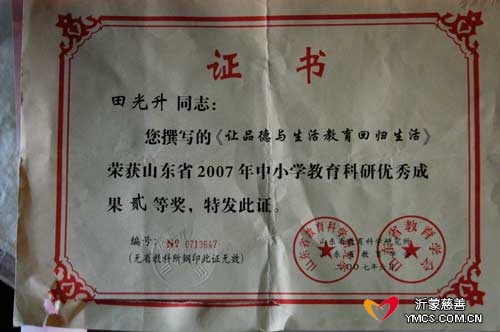 证书
田光升 同志：
您撰写的《让品德与生活教育回归生活》
荣获山东省2007年中小学教育科研优秀成
果 贰 等奖，特发此证。
编号：№ 0713647
(无省教科所钢印此证无效)
山东省教育科学研究所
山东省教育学会
二〇〇七年
沂蒙慈善
YMCS.COM.CN